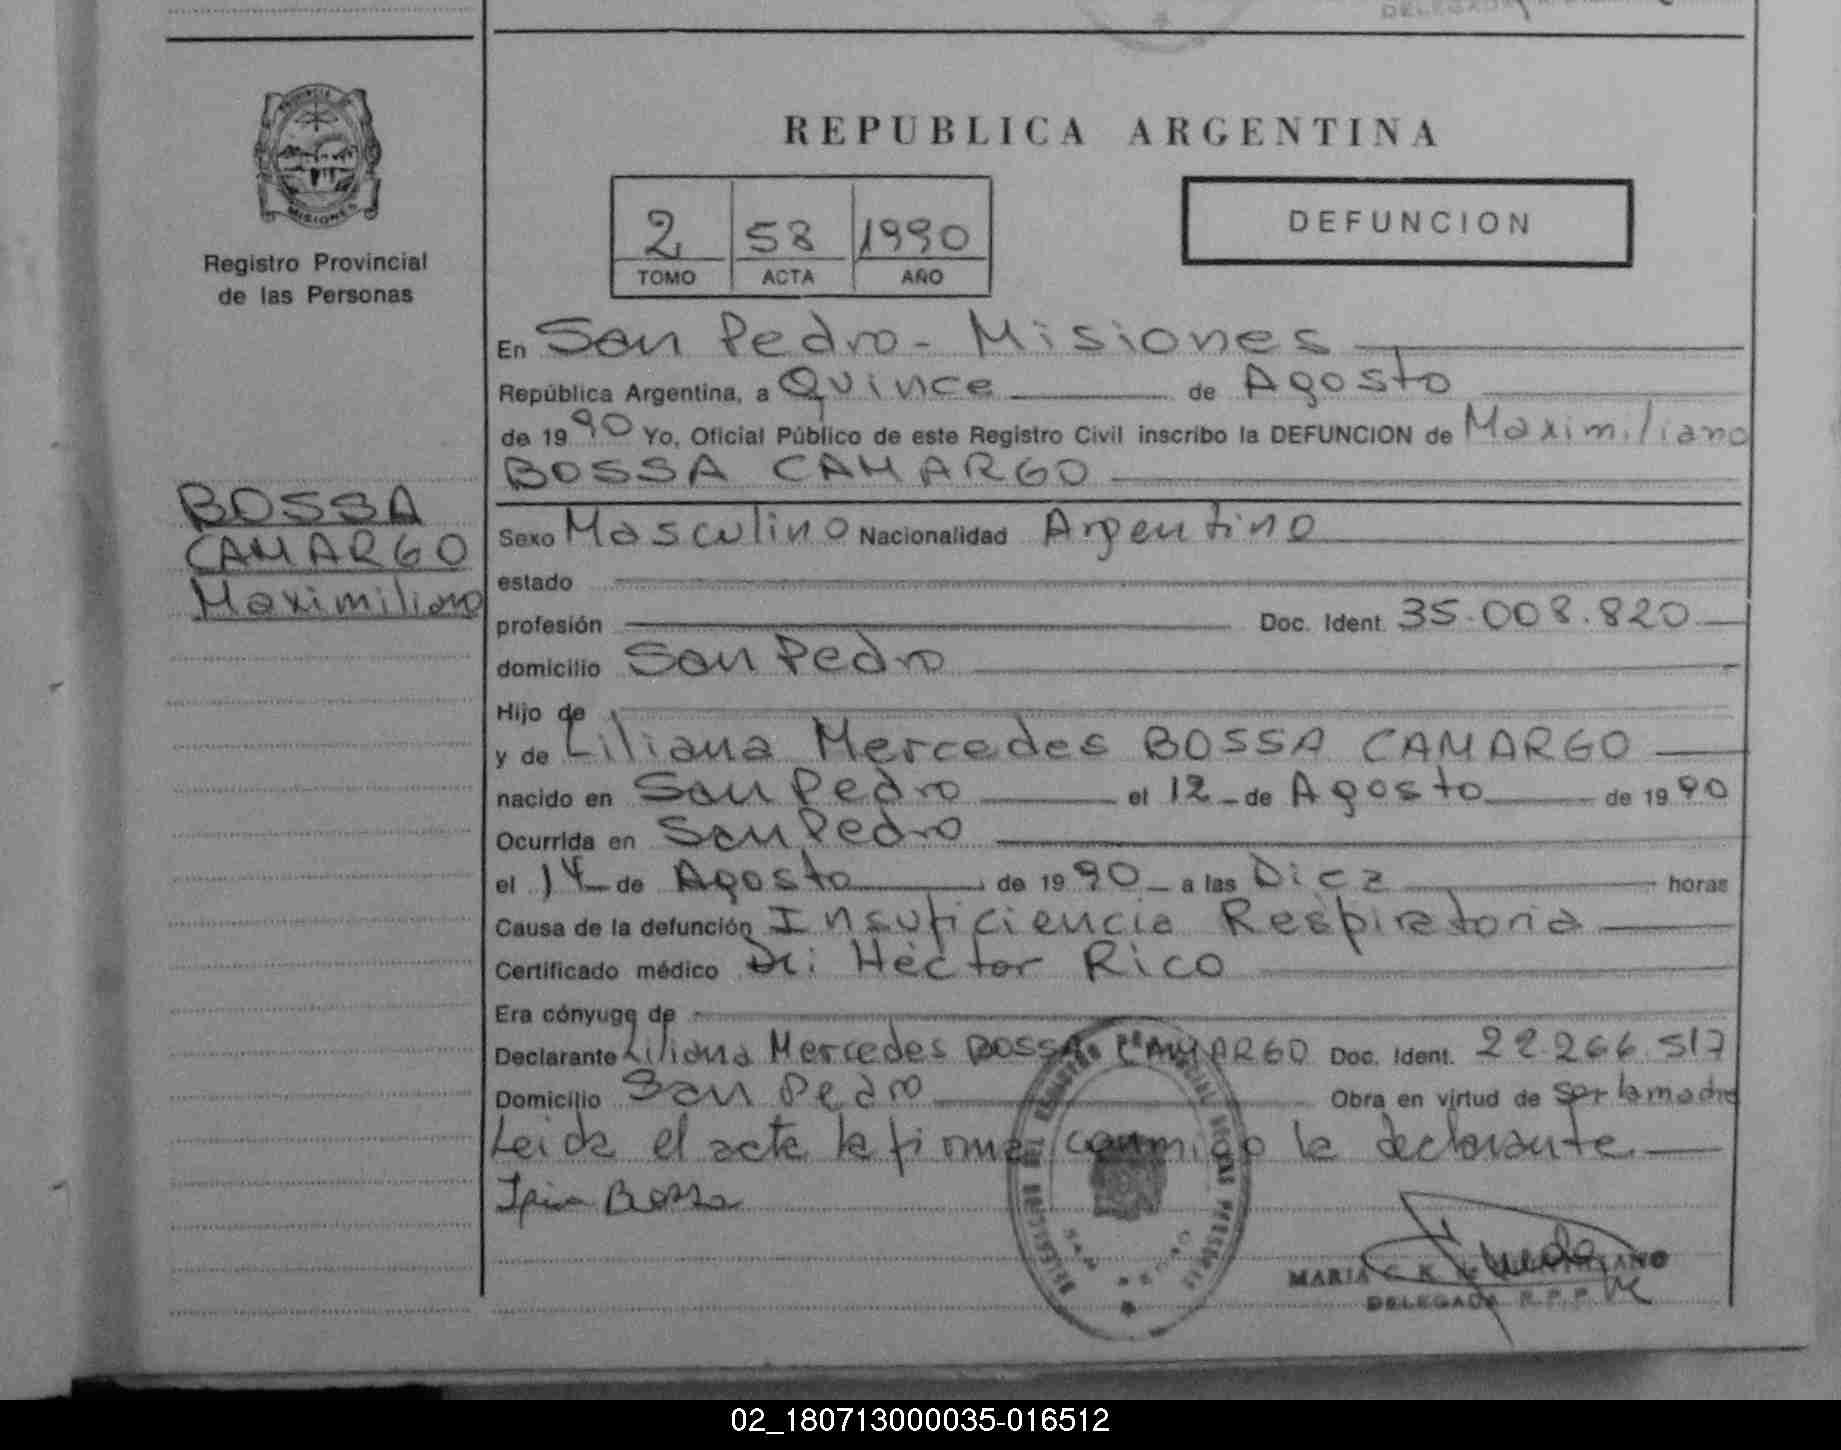 REPUBLICA ARGENTINA
PROVINCIA DE
MISIONES
Registro Provincial
de las Personas
2 58 1990
TOMO ACTA AÑO
DEFUNCION
En San Pedro - Misiones
República Argentina, a Quince de Agosto
de 1990 Yo, Oficial Público de este Registro Civil inscribo la DEFUNCION de Maximiliano
BOSSA CAMARGO
BOSSA
CAMARGO
Maximiliano
Sexo Masculino Nacionalidad Argentino
estado
profesión Doc. Ident. 35.008.820
domicilio San Pedro
Hijo de
y de Liliana Mercedes BOSSA CAMARGO
nacido en San Pedro el 12 de Agosto de 1990
Ocurrida en San Pedro
el 14 de Agosto de 1990 a las Diez horas
Causa de la defunción Insuficiencia Respiratoria
Certificado médico Dr: Héctor Rico
Era cónyuge de
Declarante Liliana Mercedes BOSSA CAMARGO Doc. Ident. 22.266.517
Domicilio San Pedro Obra en virtud de ser la madre
Leida el acta la firma conmigo la declarante
Bossa
MARIA C. K.
DELEGADA R.P.P.
02_180713000035-016512